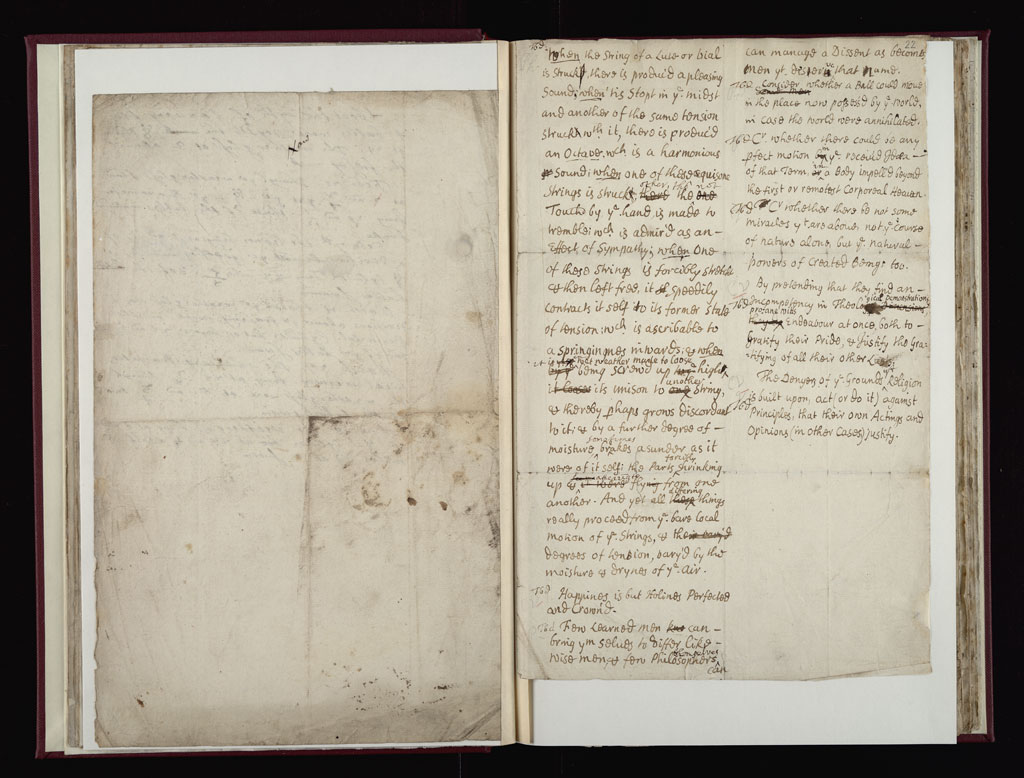 22
When the String of a Lute or Vial
is Struck, there is produc'd a pleasing
Sound; when 'tis Stopt in yᵉ midst
and another of the same tension
struck wᵗʰ it, there is produc'd
an Octave, wᶜʰ is a harmonious
Sound: when one of these equisone
Strings is struck, other, tho' not
Toucht by yᵉ hand, is made to
tremble; wᶜʰ is admir'd as an-
Effect of Sympathy; when One
of these Strings is forcibly stretcht
& then left free, it Speedily
contracts it self to its former State
of tension; wᶜʰ is ascribable to
a springiness inwards; & when
it is by wet weather made to loose
being screw'd up high,
it looses its unison to another String,
& thereby phaps grows discordant
to it; & by a further degree of-
moisture sometymes brakes asunder as it
were of it self; the Parts forcibly shrinking
up & flying from one
another. And yet all these differing things
really proceed from yᵉ bare local
motion of yᵉ Strings, & their vary'd
degrees of tension, vary'd by the
moisture & drynes of yᵉ Air.
Happines is but Holines Perfected
and Crown'd.
Few Learned men can-
bring yᵐ selves to differ like-
wise men, & few Philosophers themselves
can
can manage a Dissent as becomes
men yᵗ deserve that name.
Consider, whether a Ball could move
in the place now possesd by yᵉ world,
in case the world were annihilated.
Cʳ whether there could be any
pfect motion yᵉ receiv'd Idea-
of that Term, in a Body impell'd beyond
the first or remotest Corporeal Heaven.
Cʳ whether there be not some
miracles yᵗ are above, not yᵉ course
of nature alone, but yᵉ natural-
powers of Created Beings too.
By pretending that they find an-
incompetency in Theological Demonstrations,
profane men
Endeavour at once, both to-
gratify their Pride, & justify the Gra-
tifying of all their other Lusts.
The Denyers of yᵉ Grounds Religion
is built upon, act (or do it) against
Principles, that their own Actings and
Opinions (in other Cases) justify.